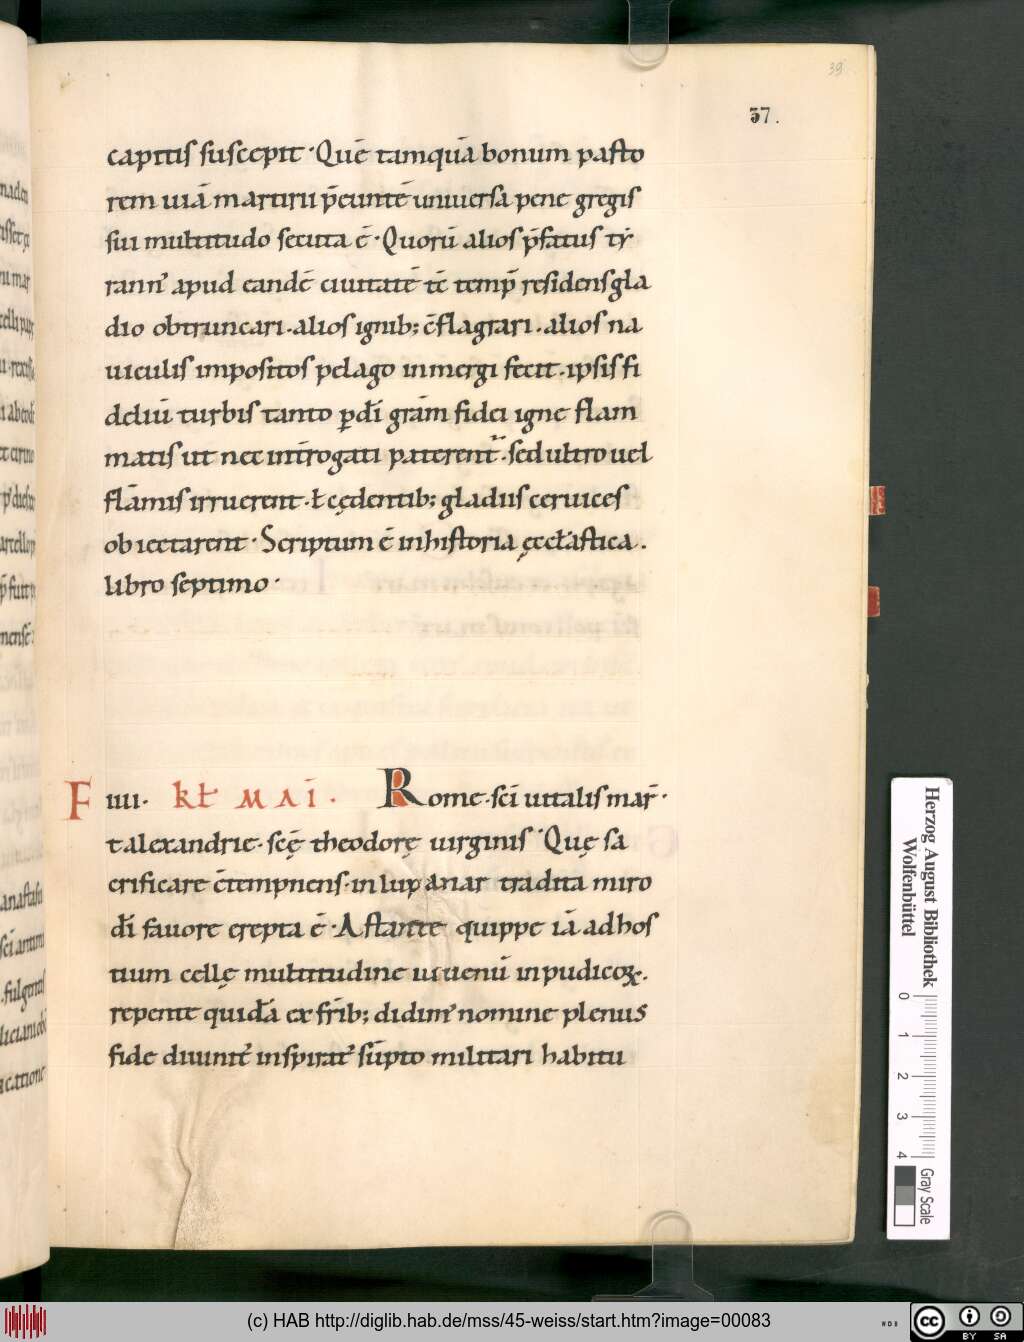 39
37.
capitis suscepit · Quē tamquā bonum pasto
rem uiā martirii p̄eunte᷄ uniuersa pene gregis
sui multitudo secuta ē · Quorū alios p̄fatus ty
rannꝰ apud eandē ciuitatē tc̄ temp̄ residens gla
dio obtruncari · alios ignib; c̄flagrari · alios na
uiculis impositos pelago inmergi fecit · ipsis fi
deliū turbis tanto ꝑ dī gram̄ fidei igne flam
matis ut nec int̄rogati paterent᷑ · sed ultro uel
flāmis irruerent · ł cędentib; gladiis ceruices
obiectarent · Scriptum ē in historia ęccłastica ·
libro septimo ·
F IIII · kł MAI · Rome · sc̄i uitalis mar̄ ·
t alexandrie · sc̄ę theodorę uirginis · Quę sa
crificare c̄tempnens · in lupanar tradita miro
dī fauore erepta ē · Astante quippe iā ad hos
tium cellę multitudine iuuenū inpudicoꝝ ·
repente quidā ex fr̄ib; didimꝰ nomine plenus
fide diuinit᷑ inspiratꝰ sūpto militari habitu
nades
Herzog August Bibliothek
Wolfenbüttel
0 1 2 3 4
Gray Scale
(c) HAB http://diglib.hab.de/mss/45-weiss/start.htm?image=00083
HAB
cc BY SA